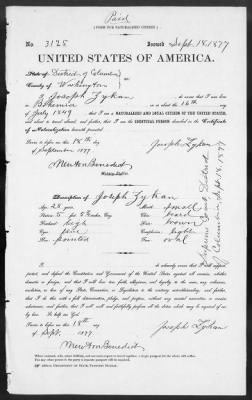 Paid
(FORM FOR NATURALIZED CITIZEN.)
No. 3128 Issued Sept. 18, 1877
UNITED STATES OF AMERICA.
State of District of Columbia
County of Washington
I, Joseph Zykan, do swear that I was born
in Bohemia on or about the 16th day
of July 1849; that I am a NATURALIZED AND LOYAL CITIZEN OF THE UNITED STATES,
and about to travel abroad; and further, that I am the IDENTICAL PERSON described in the Certificate
of Naturalization herewith presented.
Sworn to before me this 18th day
of September 1877.
Joseph Zykan
Newton Benedict
Notary Public.
Description of Joseph Zykan
Age: 28 years Mouth: small
Stature: 5 feet 8 Inches, Eng. Chin: beard
Forehead: high Hair: brown
Eyes: Complexion: light
Nose: pointed Face: oval
Supreme Court District
of Columbia, Sept. 18, 1877
I, do solemnly swear that I will support,
protect, and defend the Constitution and Government of the United States against all enemies, whether
domestic or foreign; and that I will bear true faith, allegiance, and loyalty to the same, any ordinance,
resolution, or law of any State, Convention, or Legislature to the contrary notwithstanding; and further,
that I do this with a full determination, pledge, and purpose, without any mental reservation or evasion
whatsoever; and further, that I will well and faithfully perform all the duties which may be required of me
by law. So help me God.
Sworn to before me this 18th day
of Sept. 1877.
Joseph Zykan
Newton Benedict